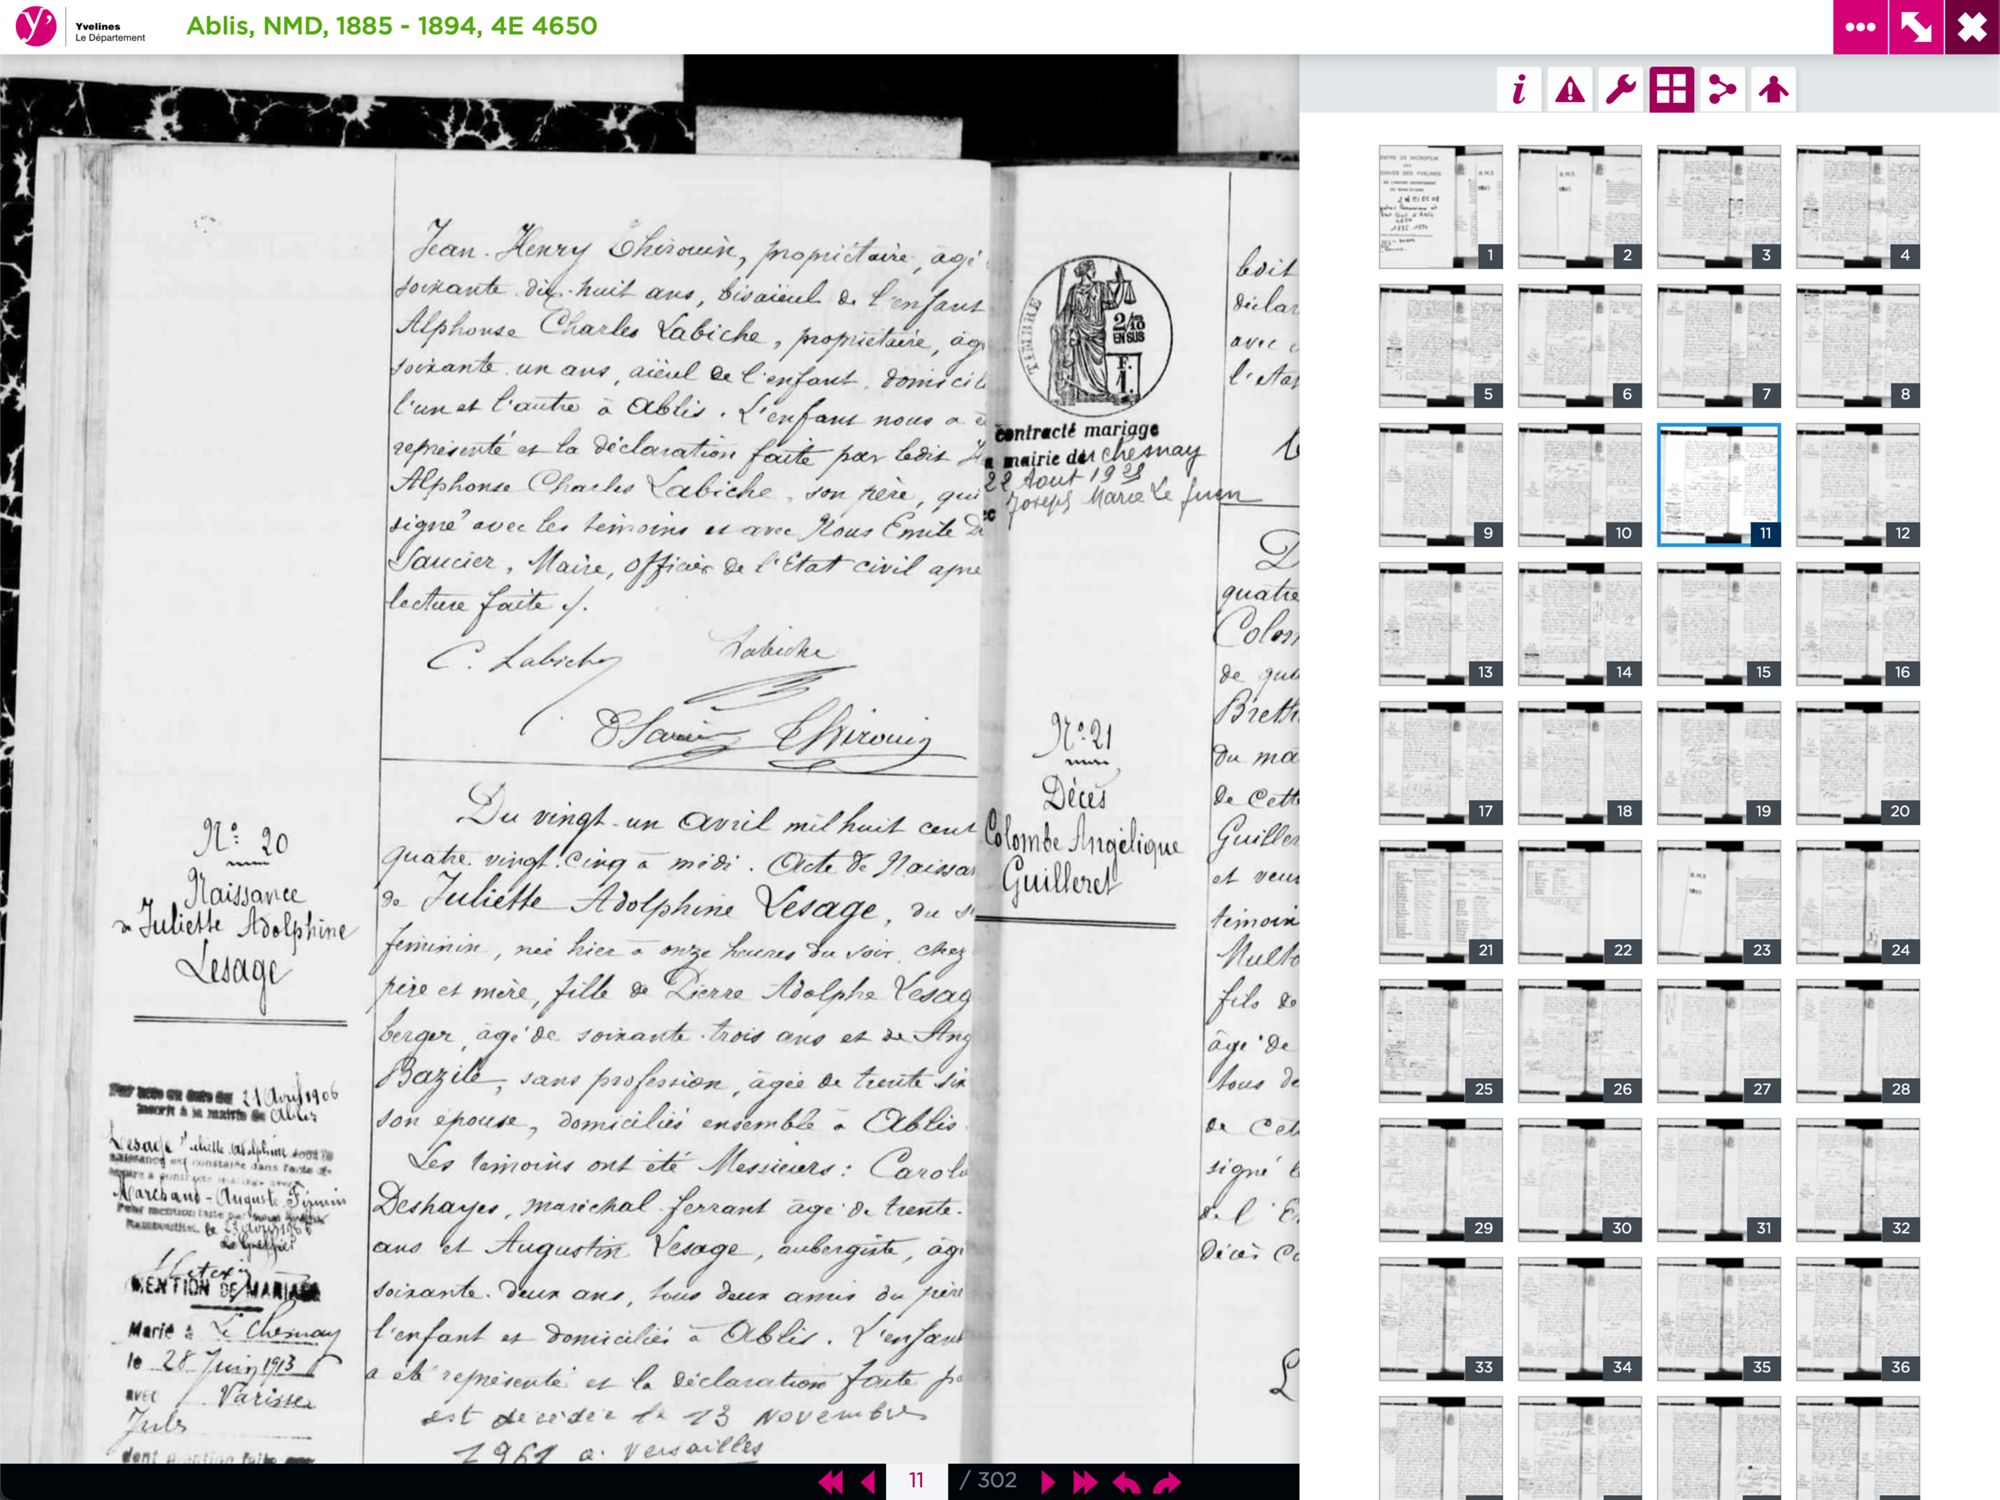 Yvelines
Le Département
Ablis, NMD, 1885 - 1894, 4E 4650
Jean-Henry Thirouin, propriétaire, âgé
soixante-dix-huit ans, bisaïeul de l'enfant
Alphonse Charles Labiche, propriétaire, âg
soixante-un ans, aïeul de l'enfant, domicil
l'un et l'autre à Ablis. L'enfant nous a é
représenté et la déclaration faite par ledit
Alphonse Charles Labiche, son père, qui
signé avec les témoins et avec Nous Emile D
Saucier, Maire, officier de l'Etat civil apre
lecture faite ./.
C. Labiche
Labiche
Thirouin
N° 20
Naissance
de Juliette Adolphine
Lesage
Du vingt-un avril mil huit cent
quatre-vingt-cinq à midi. Acte de Naissa
de Juliette Adolphine Lesage, du s
féminin, née hier à onze heures du soir, chez
père et mère, fille de Pierre Adolphe Lesag
berger, âgé de soixante-trois ans et de Ang
Bazile, sans profession, âgée de trente-six
son épouse, domiciliés ensemble à Ablis
Les témoins ont été Messieurs : Carol
Deshayes, maréchal-ferrant âgé de trente-
ans et Augustin Lesage, aubergiste, âg
soixante-deux ans, tous deux amis du père
l'enfant et domiciliés à Ablis. L'enfant
a été représenté et la déclaration faite p
est décédée le 13 novembre
1961 à Versailles
21 Avril 1906
inscrit à la mairie de Ablis
Lesage Juliette Adolphine
Marchand-Auguste Firmin
le 23 avril 1906
Le Greffier
MENTION DE MARIAGE
Marié à Le Chesnay
le 28 Juin 1913
avec Varisse
Jules
TIMBRE
2/10
EN SUS
F.
1.
contracté mariage
mairie du Chesnay
22 Aout 19
Joseph Marie Le
N° 21
Décès
Colombe Angélique
Guilleret
ledit
déclar
avec
l'Eta
D
quatre
Colom
de qua
Breth
du ma
de cett
Guiller
et veu
témoin
Multo
fils de
âgé de
tous de
de cet
signé
de l'E
décès
11 / 302
1
2
3
4
5
6
7
8
9
10
11
12
13
14
15
16
17
18
19
20
21
22
23
24
25
26
27
28
29
30
31
32
33
34
35
36